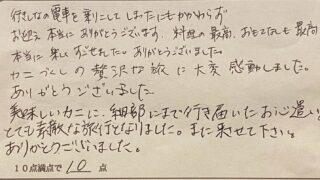 行きしなの電車を乗りこしてしまったにもかかわらず
お迎え本当にありがとうございます。料理も最高、おもてなしも最高
本当に楽しくすごせました。ありがとうございました。
カニづくしの贅沢な旅に大変感動しました。
ありがとうございました。
美味しいカニに、細部にまで行き届いたお心遣い、
とても素敵な旅行となりました。また来させて下さい。
ありがとうございました。
10点満点で 10 点